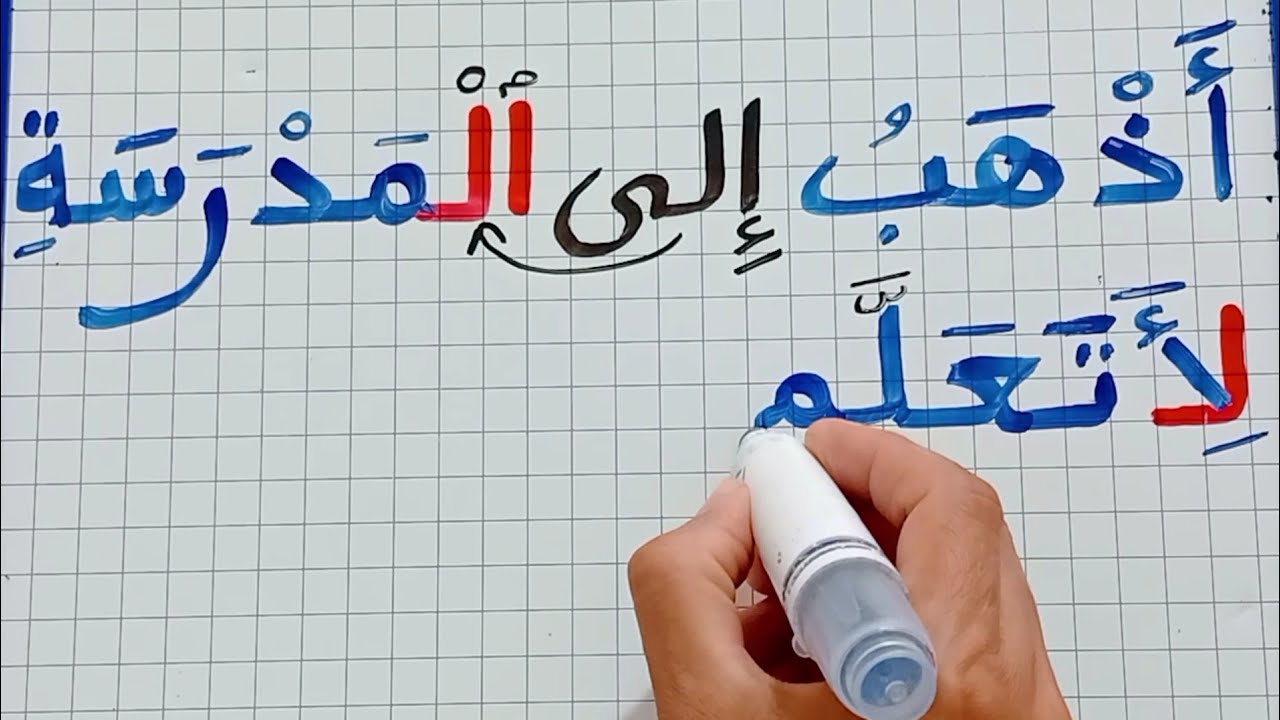 أَذْهَبُ إِلى ٱلْمَدْرَسَةِ
لِأَتَعَلَّم